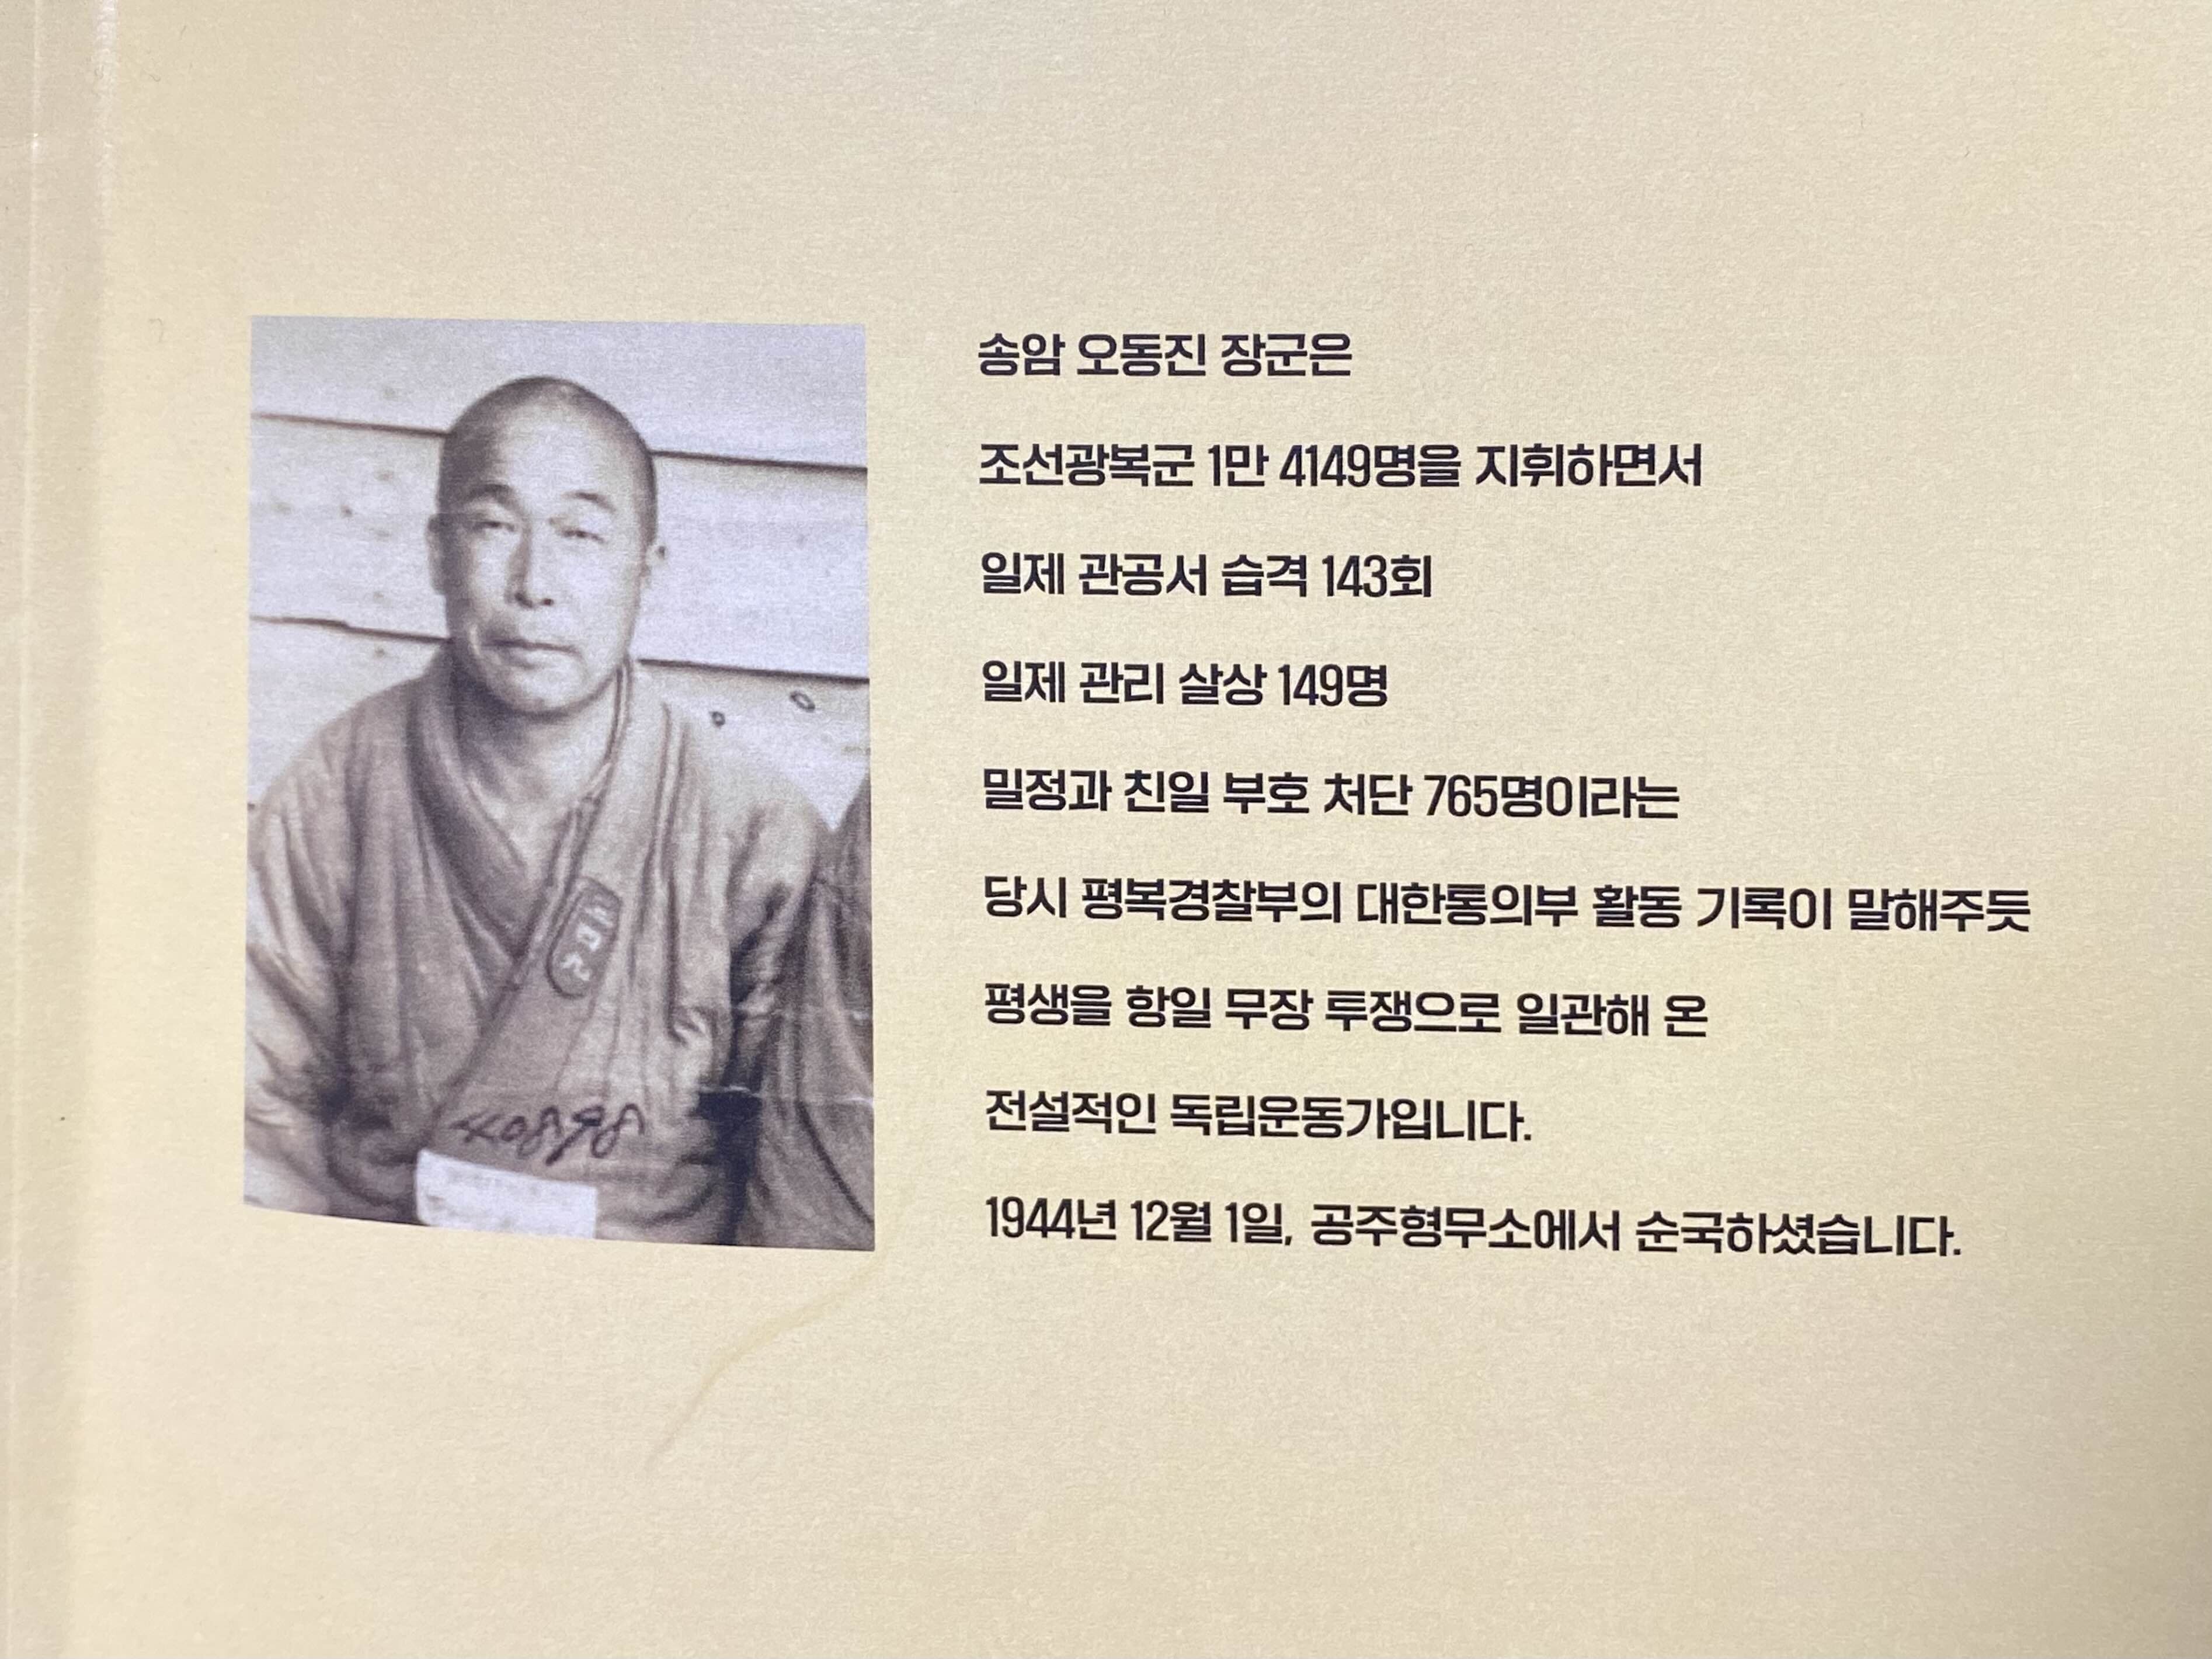 송암 오동진 장군은
조선광복군 1만 4149명을 지휘하면서
일제 관공서 습격 143회
일제 관리 살상 149명
밀정과 친일 부호 처단 765명이라는
당시 평북경찰부의 대한통의부 활동 기록이 말해주듯
평생을 항일 무장 투쟁으로 일관해 온
전설적인 독립운동가입니다.
1944년 12월 1일, 공주형무소에서 순국하셨습니다.